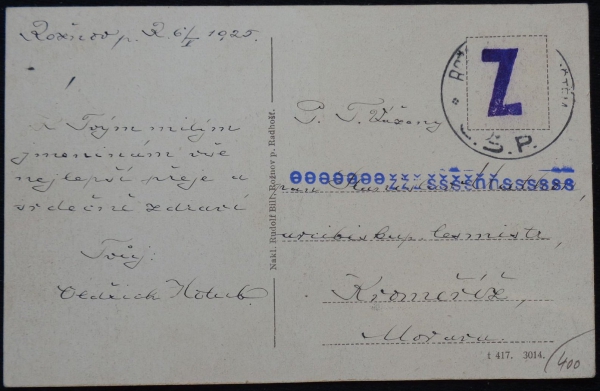 Rožnov p. R. 6/I 1925.
K Tvým milým
jmeninám vše
nejlepší přeje a
srdečně zdraví
Tvůj:
Oldřich Holub.
Nakl. Rudolf Bill, Rožnov p. Radhošť.
Z
Č.S.P.
P. T. Vážený
pan
arcibiskup. lesmistr,
Kroměříž,
Morava.
t 417. 3014.
400